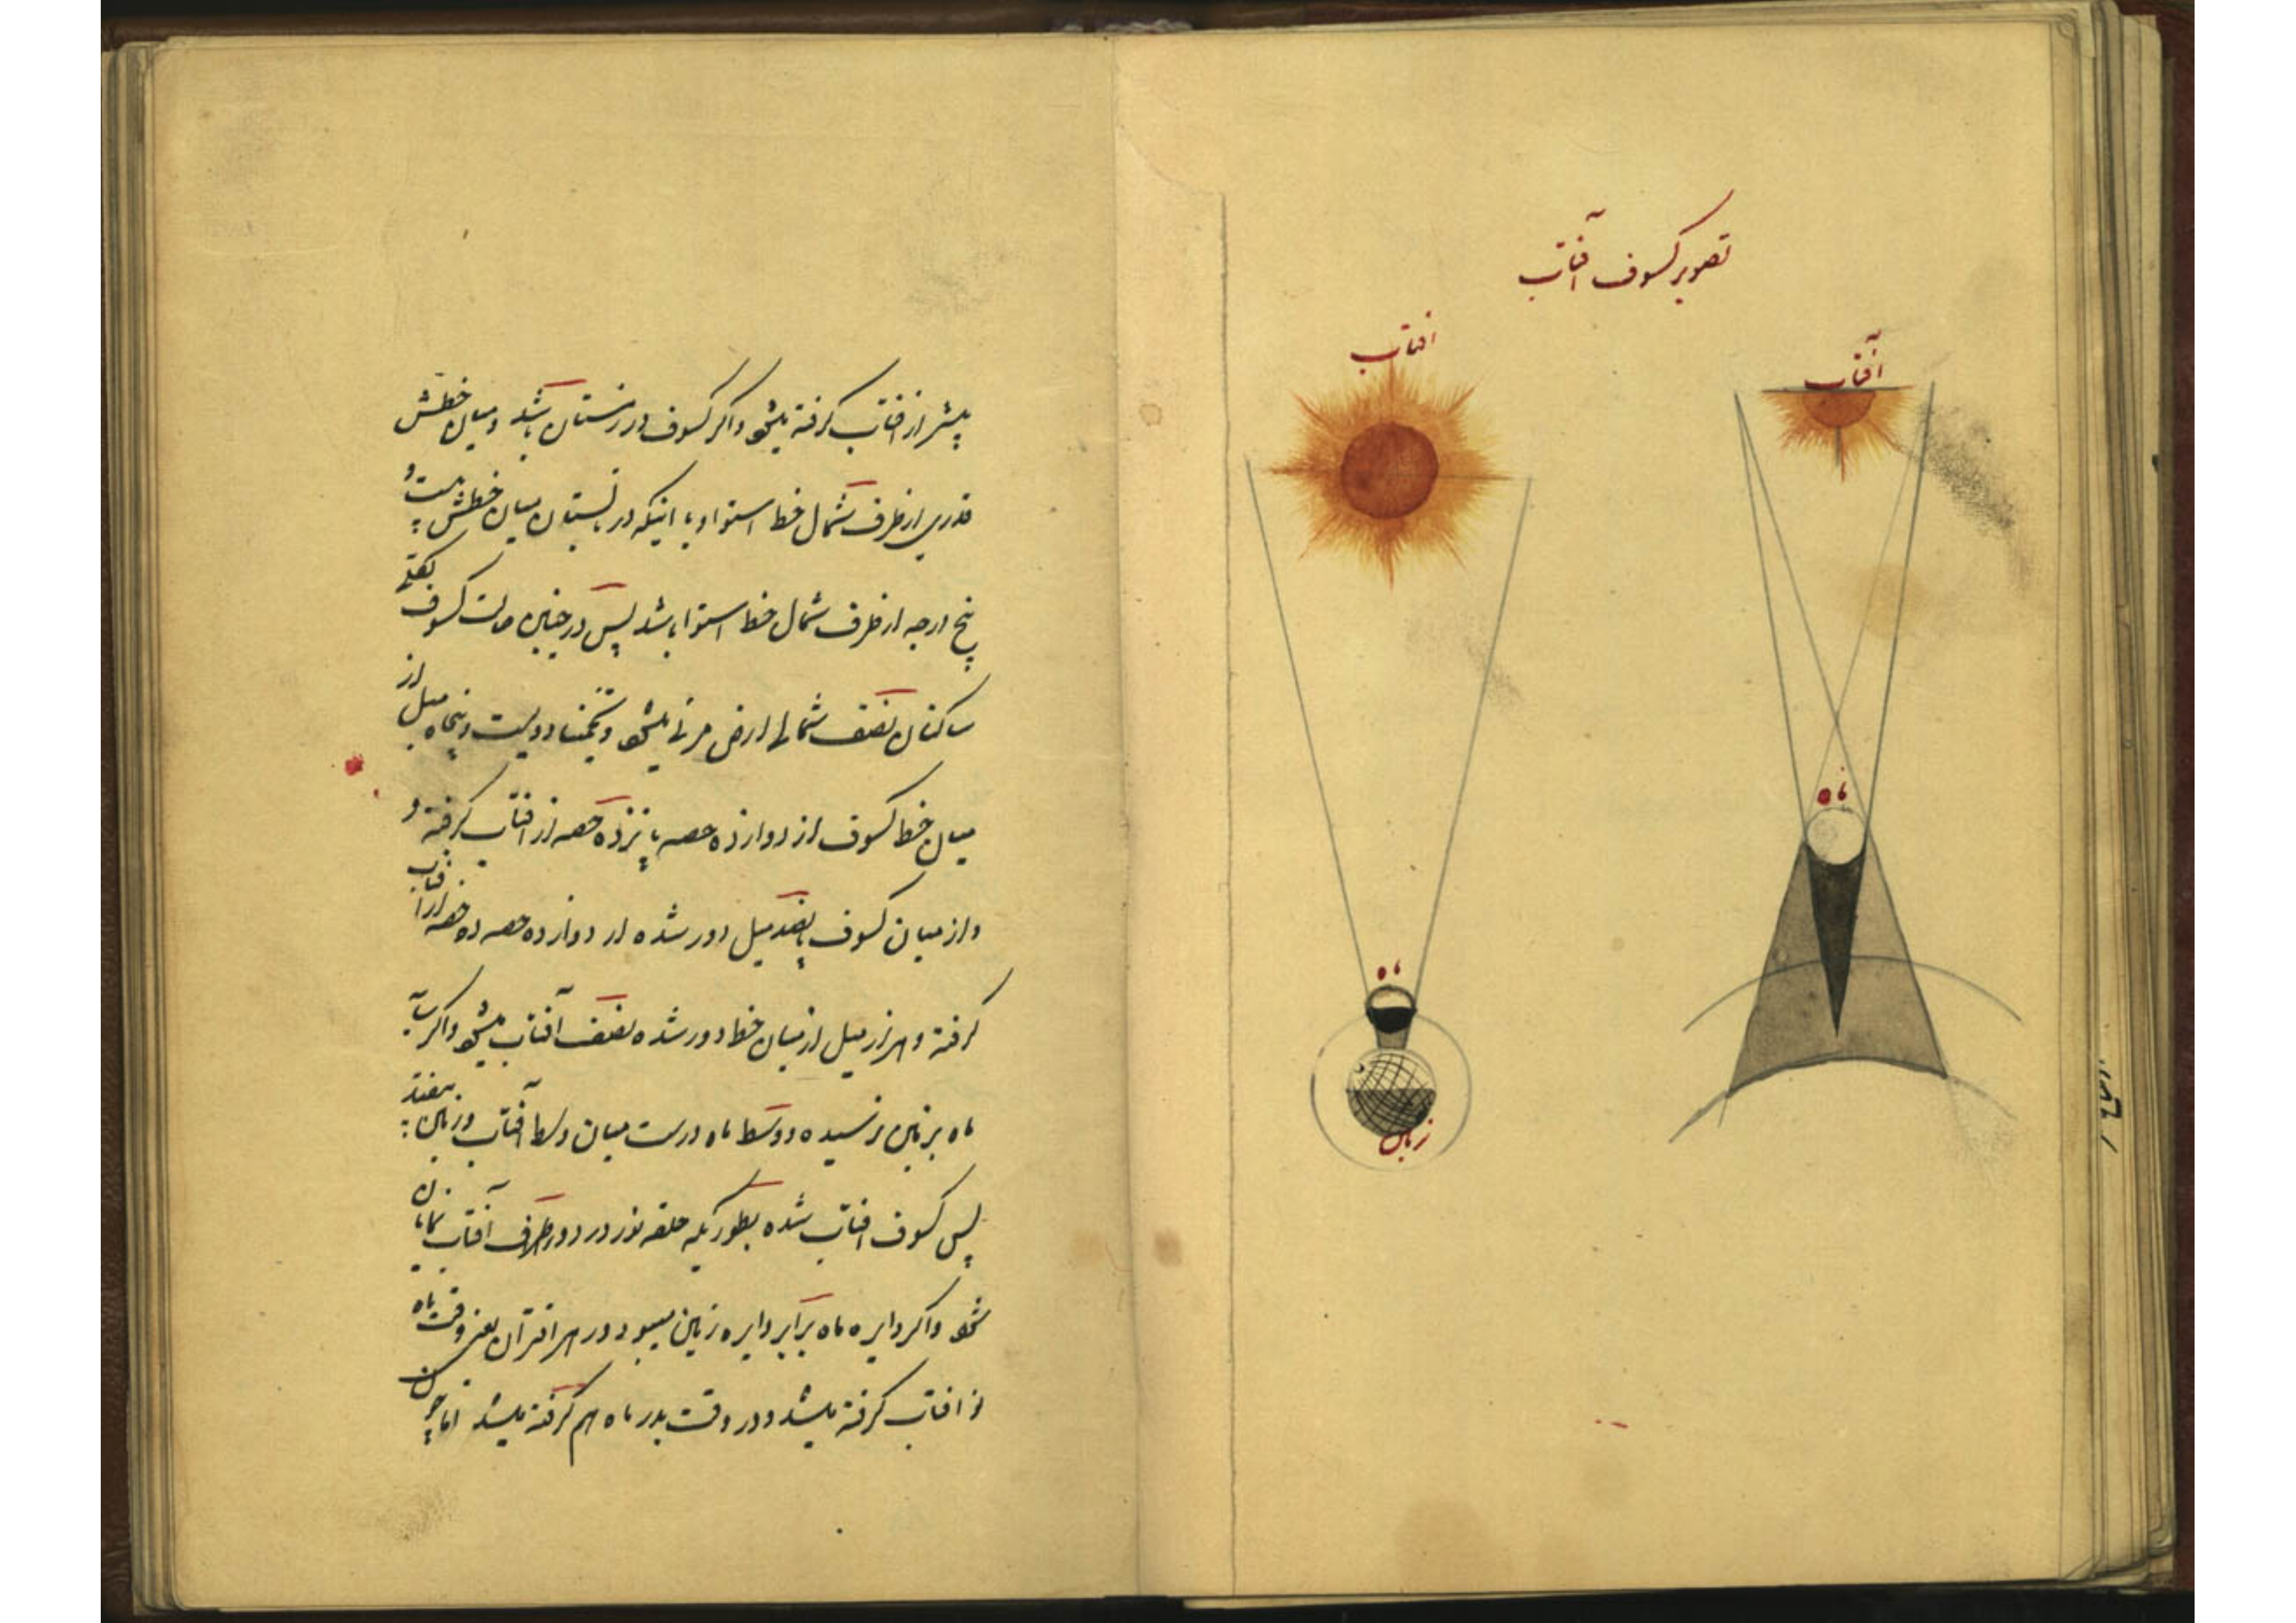 تصویر کسوف آفتاب
آفتاب
افتاب
ماه
ماه
زمین
پیشتر از افتاب گرفته میشود و اگر کسوف در زمستان باشد و میان خطش
قدری از طرف شمال خط استوا و یا اینکه در تابستان میان خطش بیست و
پنج درجه از طرف شمال خط استوا باشد پس در چنین حالت کسوف
ساکنان نصف شمالی ارض مرئی میشود و تخمینا دویست و پنجاه میل از
میان خط کسوف از دوازده حصه یازده حصه از افتاب گرفته و
و از میان کسوف پانصد میل دور شده از دوازده حصه ده حصه از آفتاب
گرفته و هزار میل از میان خط دور شده نصف آفتاب میشود و اگر سایه
ماه بر زمین نرسیده و وسط ماه درست میان وسط آفتاب و زمین بیفتد
پس کسوف افتاب شده بطوریکه حلقه نور در دور طرف آفتاب نمایان
شود و اگر دایره ماه برابر دایره زمین میبود در هر اقتران یعنی وقت ماه
نو افتاب گرفته میشد و در وقت بدر ماه هم گرفته میشد اما چون